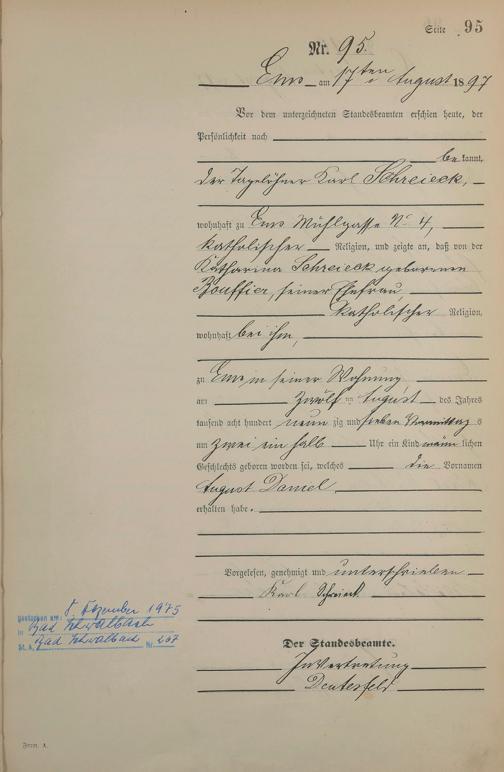 Seite 95
Nr. 95.
Ems am 17ten August 1897
Vor dem unterzeichneten Standesbeamten erschien heute, der
Persönlichkeit nach
bekannt,
der Tagelöhner Karl Schreieck,
wohnhaft zu Ems Mühlgasse No 4,
katholischer Religion, und zeigte an, daß von der
Katharina Schreieck geborenen
Bouffier, seiner Ehefrau,
katholischer Religion,
wohnhaft bei ihm,
zu Ems in seiner Wohnung
am zwölften August des Jahres
tausend acht hundert neunzig und sieben Vormittags
um zwei ein halb Uhr ein Kind männlichen
Geschlechts geboren worden sei, welches die Vornamen
August Daniel
erhalten habe.
Vorgelesen, genehmigt und unterschrieben
Karl Schreieck
Der Standesbeamte.
In Vertretung
gestorben am: 8. Dezember 1975
in Bad Schwalbach
St. A. Bad Schwalbach Nr. 267
Form. A.